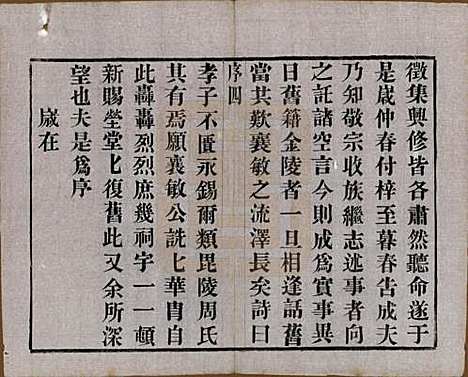 徵集興修皆各肅然聽命遂于
是歲仲春付梓至暮春告成夫
乃知敬宗收族繼志述事者向
之託諸空言今則成爲實事異
日舊籍金陵者一旦相逢話舊
當其歎襄敏之流澤長矣詩曰
序四
孝子不匱永錫爾類毘陵周氏
其有焉願襄敏公詵七華胄自
此轟轟烈烈庶幾祠宇一一頓
新賜塋堂七復舊此又余所深
望也夫是爲序
歲在